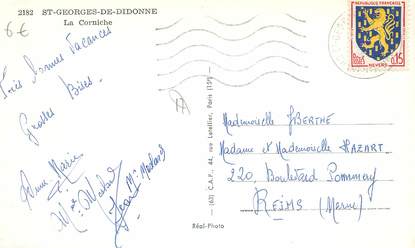 2182 ST-GEORGES-DE-DIDONNE
La Corniche
6€
RÉPUBLIQUE FRANÇAISE
POSTES 0,15
NEVERS
Très bonnes Vacances
Grosses Bises.
Anne Marie
Jean
Mademoiselle BERTHE
Madame et Mademoiselle HAZART
220, Boulevard Pommery
REIMS (Marne)
(63) C.A.P., 44, rue Letellier, Paris (15e)
Réal-Photo